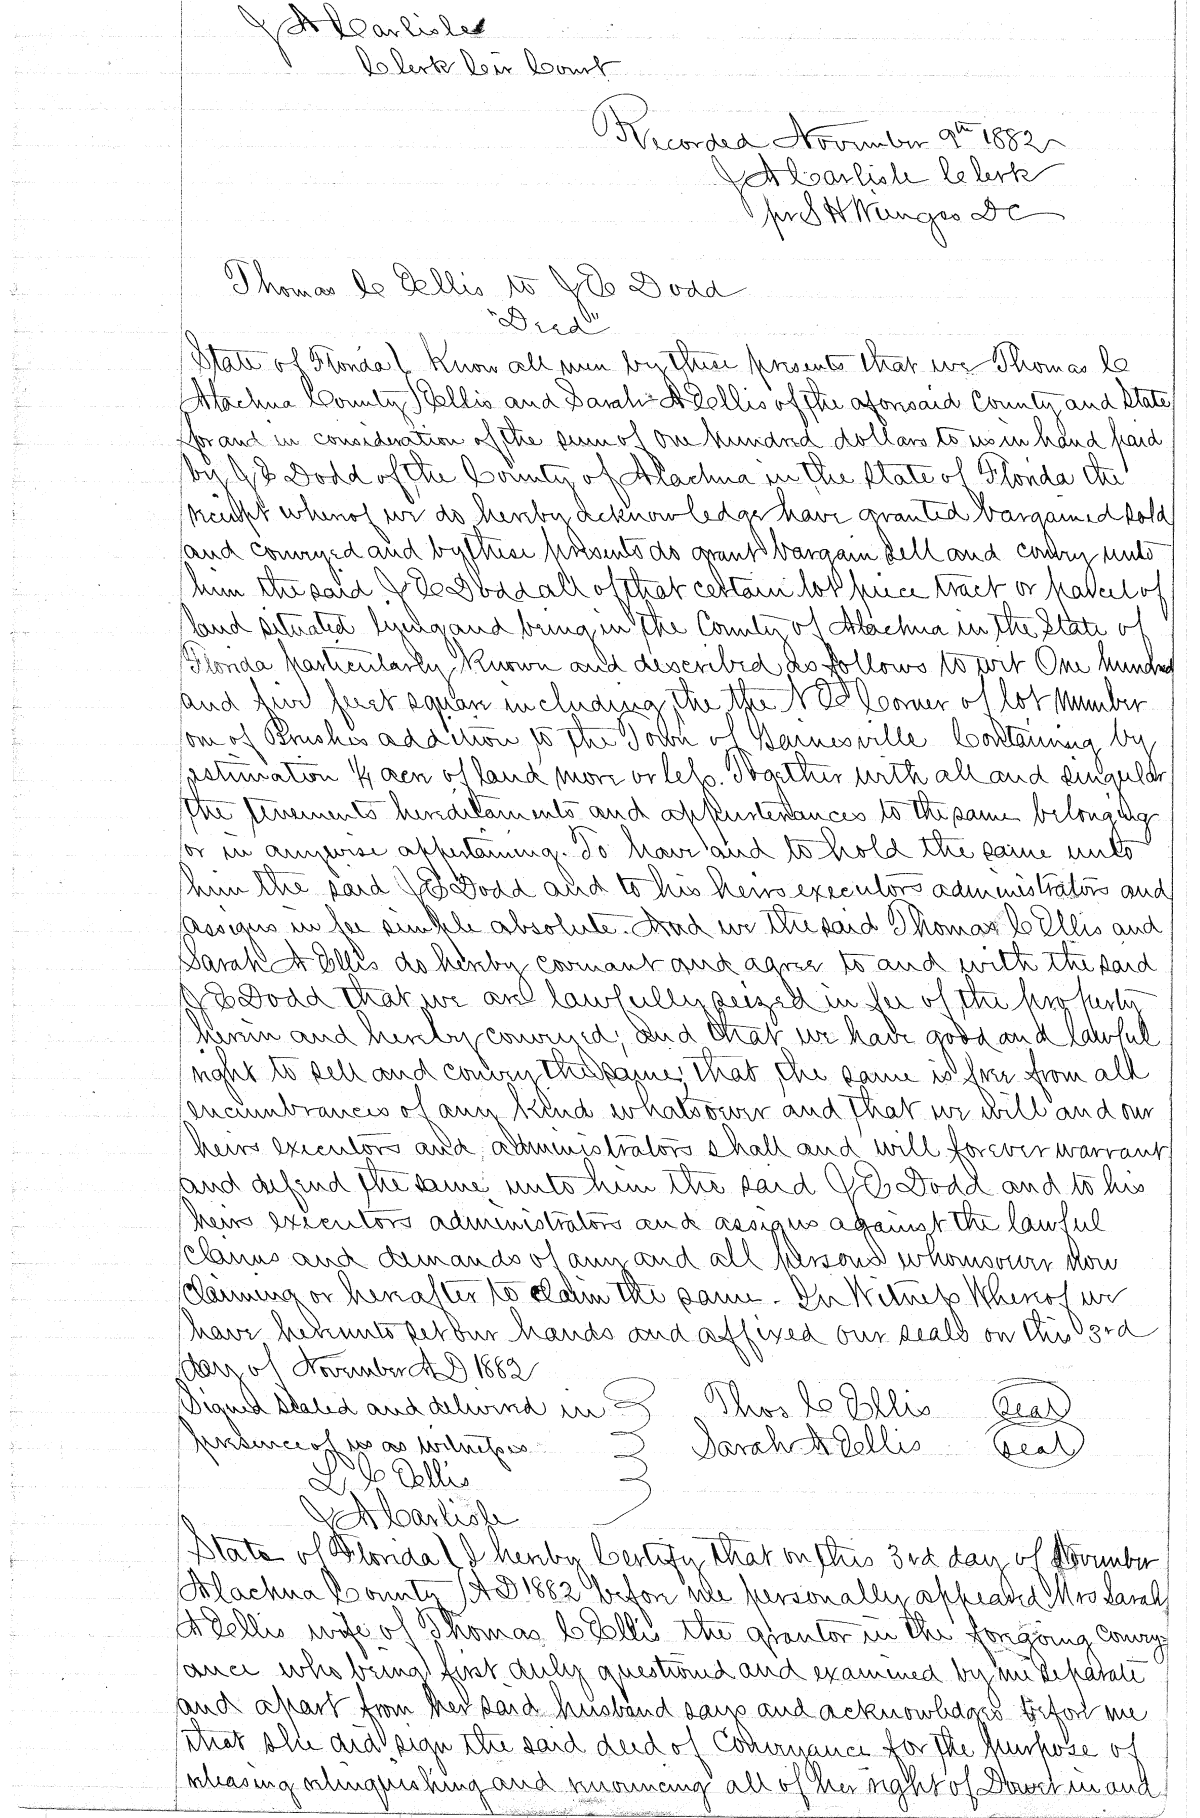 J A Carlisle
Clerk Cir Court
Recorded November 9th 1882
J A Carlisle Clerk
pr S H Wienges DC
Thomas C Ellis to J E Dodd
"Deed"
State of Florida } Know all men by these presents that we Thomas C
Alachua County } Ellis and Sarah A Ellis of the aforesaid County and State
for and in consideration of the sum of One hundred dollars to us in hand paid
by J E Dodd of the County of Alachua in the State of Florida the
receipt whereof we do hereby acknowledge have granted bargained sold
and conveyed and by these presents do grant bargain sell and convey unto
him the said J E Dodd all of that certain lot piece tract or parcel of
land situated lying and being in the County of Alachua in the State of
Florida particularly known and described as follows to wit One hundred
and five feet square including the the N E Corner of lot number
one of Brushes addition to the Town of Gainesville Containing by
estimation 1/4 acre of land more or less. Together with all and singular
the tenements hereditaments and appurtenances to the same belonging
or in anywise appertaining. To have and to hold the same unto
him the said J E Dodd and to his heirs executors administrators and
assigns in fee simple absolute. And we the said Thomas C Ellis and
Sarah A Ellis do hereby covenant and agree to and with the said
J E Dodd that we are lawfully seized in fee of the property
herein and hereby conveyed, and that we have good and lawful
right to sell and convey the same; that the same is free from all
encumbrances of any kind whatsoever and that we will and our
heirs executors and administrators shall and will forever warrant
and defend the same unto him the said J E Dodd and to his
heirs executors administrators and assigns against the lawful
claims and demands of any and all persons whomsoever now
claiming or hereafter to claim the same. In Witness Whereof we
have hereunto set our hands and affixed our seals on this 3rd
day of November A D 1882
Signed sealed and delivered in } Thos C Ellis (Seal)
presence of us as witnesses } Sarah A Ellis (Seal)
L C Ellis
J A Carlisle
State of Florida } I hereby Certify that on this 3rd day of November
Alachua County } A D 1882 before me personally appeared Mrs Sarah
A Ellis wife of Thomas C Ellis the grantor in the foregoing convey-
ance who being first duly questioned and examined by me separate
and apart from her said husband says and acknowledges before me
that she did sign the said deed of Conveyance for the purpose of
releasing relinquishing and renouncing all of her right of Dower in and